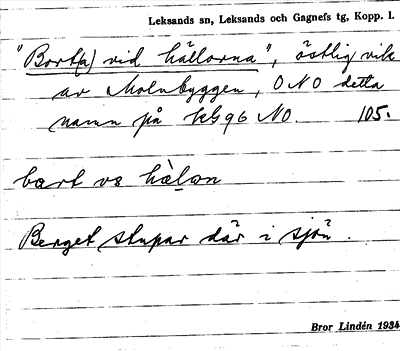 Leksands sn, Leksands och Gagnefs tg, Kopp. l.
"Bort(a) vid hällorna", östlig vik
av Molnbyggen, ONO detta
namn på KG 96 NO. 105.
bort vs hàlon
Berget stupar där i sjön.
Bror Lindén 1934